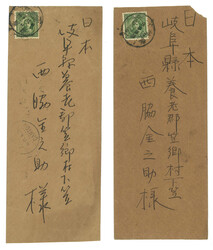 日本
岐阜縣養老郡笠郷村下笠
西脇金之助様
日本
岐阜縣養老郡笠郷村下笠
西脇金之助様